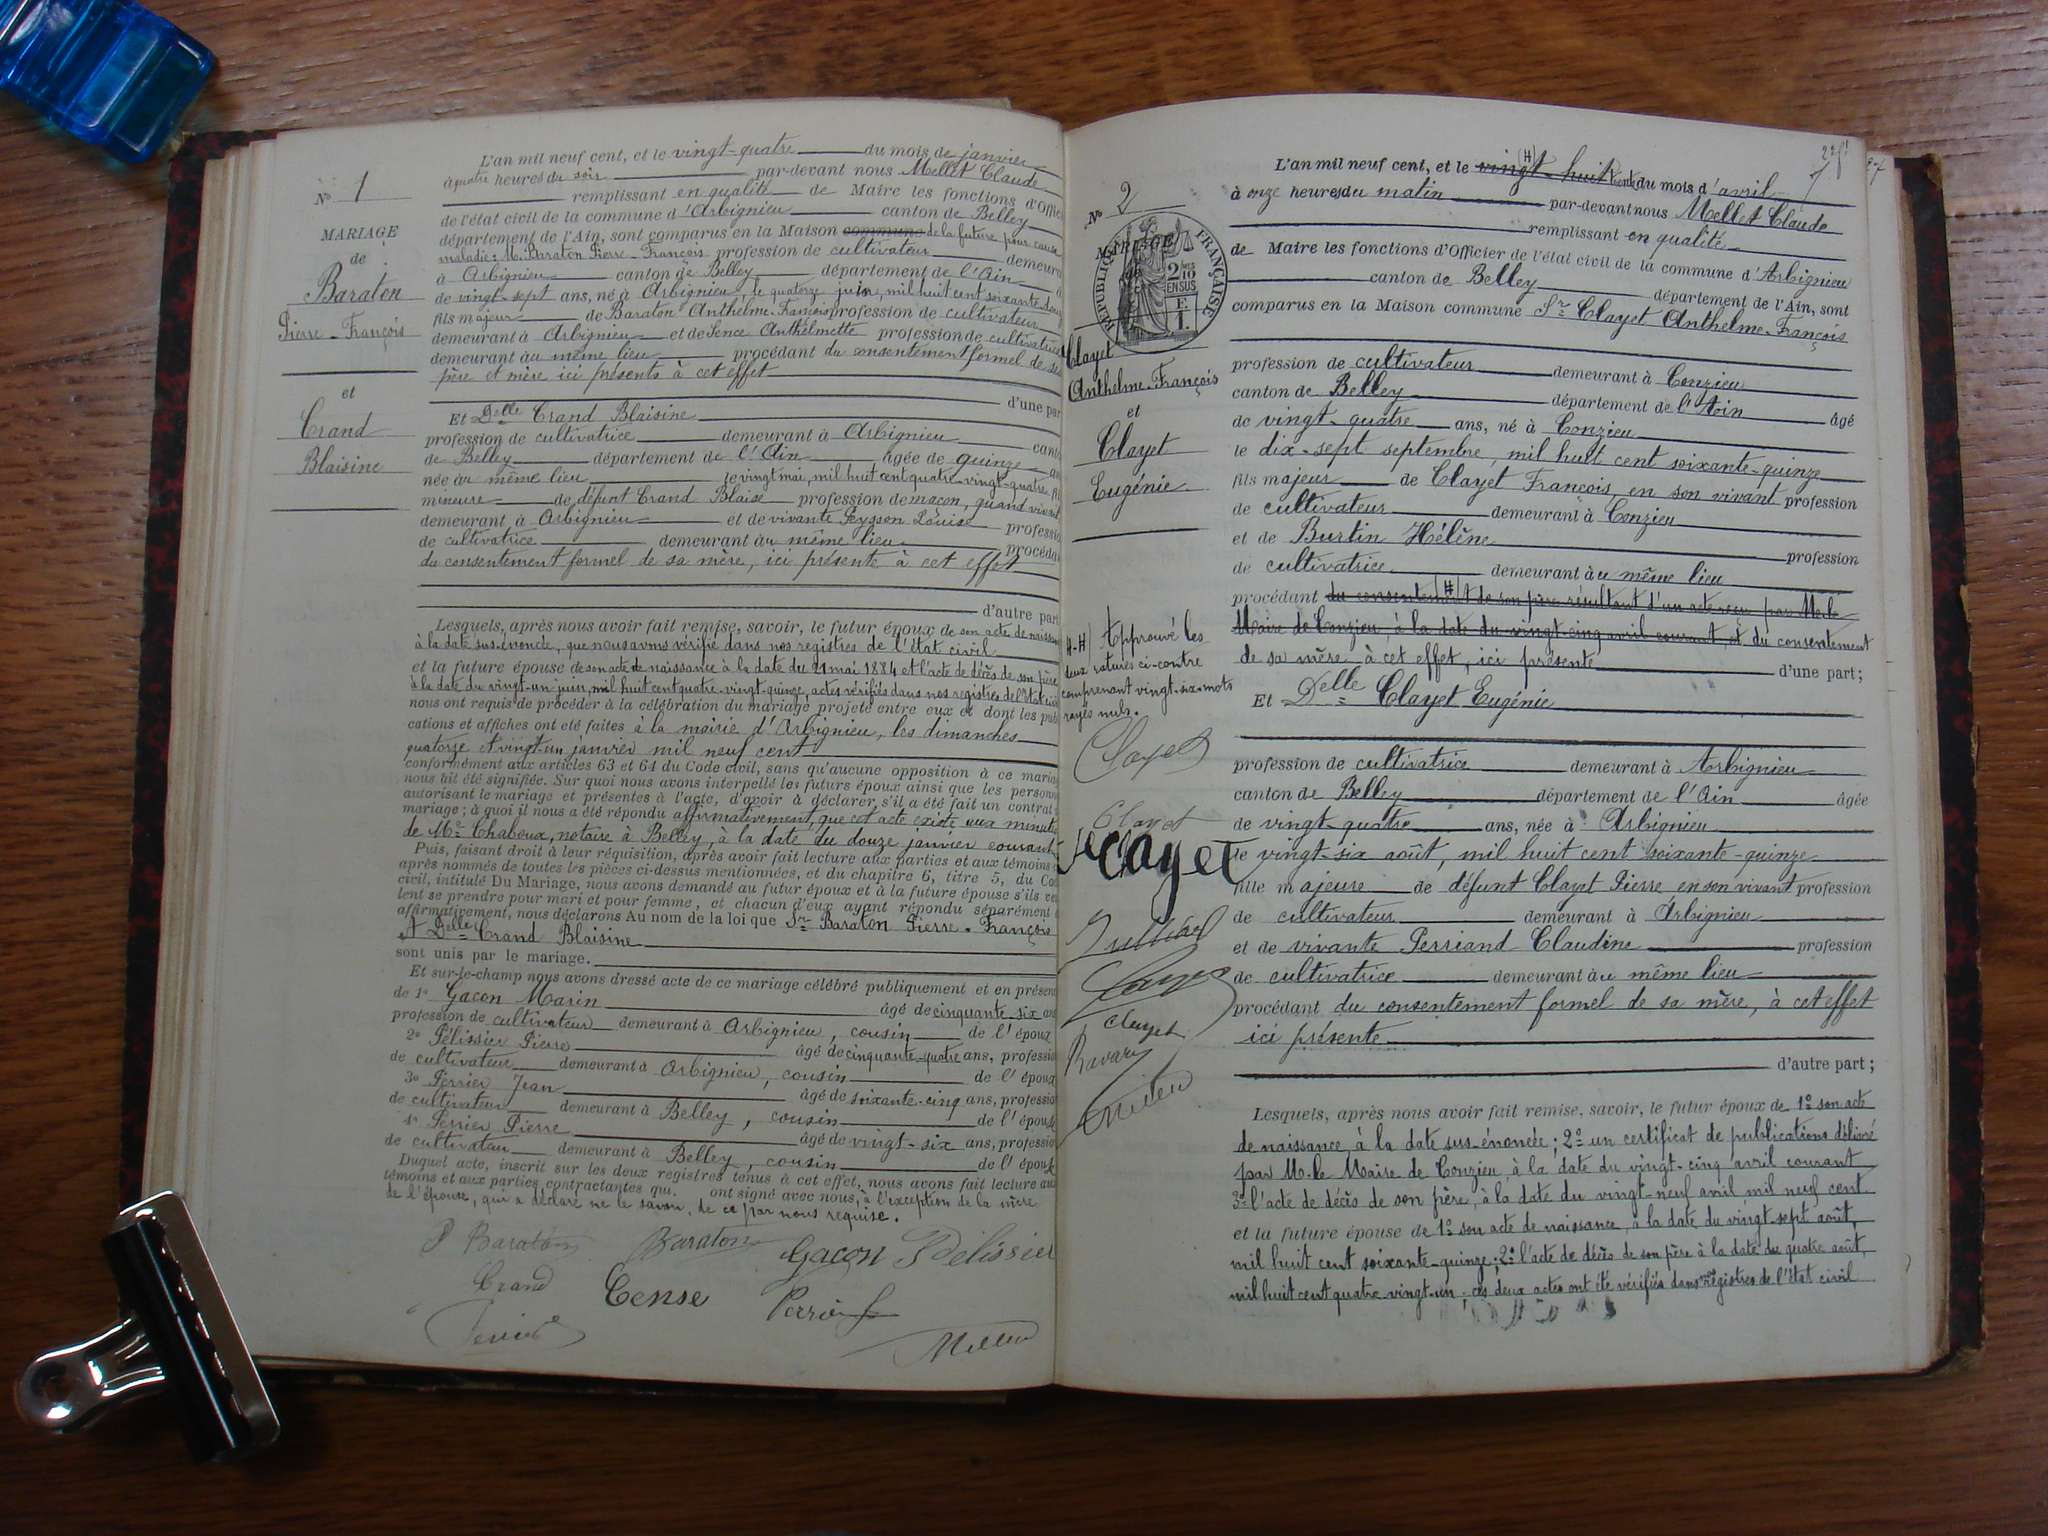 L'an mil neuf cent, et le vingt-quatre du mois de janvier
à quatre heures du soir par-devant nous Mellet Claude
remplissant en qualité de Maire les fonctions d'Offic
de l'état civil de la commune d'Arbignieu canton de Belley
département de l'Ain, sont comparus en la Maison commune de la future pour cause
maladie: M. Baraton Pierre-François profession de cultivateur demeura
à Arbignieu canton de Belley département de l'Ain
de vingt-sept ans, né à Arbignieu le quatorze juin, mil huit cent soixante
fils majeur de Baraton Anthelme-François profession de cultivateur
demeurant à Arbignieu et de Anthelmette profession de cultivatrice
demeurant au même lieu procédant du consentement formel de ses
père et mère ici présents à cet effet
d'une par
Et Delle Crand Blaisine
profession de cultivatrice demeurant à Arbignieu canto
de Belley département de l'Ain âgée de quinze ans
née au même lieu le vingt mai, mil huit cent quatre-vingt-quatre fi
mineure de défunt Crand Blaise profession de maçon, quand vivait
demeurant à Arbignieu et de vivante Peysson Louise professio
de cultivatrice demeurant au même lieu procéda
du consentement formel de sa mère, ici présente à cet effet
d'autre part
Lesquels, après nous avoir fait remise, savoir, le futur époux de son acte de naissan
à la date sus-énoncée, que nous avons vérifié dans nos registres de l'état civil
et la future épouse de son acte de naissance à la date du 21 mai 1884 et l'acte de décès de son père
à la date du vingt-un juin, mil huit cent quatre-vingt-quinze, actes vérifiés dans nos registres de l'état civil
nous ont requis de procéder à la célébration du mariage projeté entre eux et dont les publ
cations et affiches ont été faites à la mairie d'Arbignieu, les dimanches
quatorze et vingt-un janvier mil neuf cent
conformément aux articles 63 et 64 du Code civil, sans qu'aucune opposition à ce maria
nous ait été signifiée. Sur quoi nous avons interpellé les futurs époux ainsi que les person
autorisant le mariage et présentes à l'acte, d'avoir à déclarer s'il a été fait un contrat
mariage; à quoi il nous a été répondu affirmativement, que cet acte existe aux minutes
de Me Chaboux, notaire à Belley, à la date du douze janvier courant
Puis, faisant droit à leur réquisition, après avoir fait lecture aux parties et aux témoins
après nommés de toutes les pièces ci-dessus mentionnées, et du chapitre 6, titre 5, du Co
civil, intitulé Du Mariage, nous avons demandé au futur époux et à la future épouse s'ils veu
lent se prendre pour mari et pour femme, et chacun d'eux ayant répondu séparément
affirmativement, nous déclarons Au nom de la loi que Sr Baraton Pierre-François
et Delle Crand Blaisine
sont unis par le mariage.
Et sur-le-champ nous avons dressé acte de ce mariage célébré publiquement et en présen
de 1° Gacon Marin âgé de cinquante-six ans
profession de cultivateur demeurant à Arbignieu, cousin de l'époux
2° Pélissier Pierre âgé de cinquante-quatre ans, professio
de cultivateur demeurant à Arbignieu, cousin de l'époux
3° Perrier Jean âgé de soixante-cinq ans, professio
de cultivateur demeurant à Belley, cousin de l'épouse
4° Perrier Pierre âgé de vingt-six ans, professio
de cultivateur demeurant à Belley, cousin de l'épouse
Duquel acte, inscrit sur les deux registres tenus à cet effet, nous avons fait lecture aux
témoins et aux parties contractantes qui ont signé avec nous, à l'exception de la mère
de l'épouse, qui a déclaré ne le savoir, de ce par nous requise.
P Baraton Baraton Gacon P Pélissier
Crand Cense Perrier
Perrier Mellet
N° 1
MARIAGE
de
Baraton
Pierre-François
et
Crand
Blaisine
N° 2
MARIAGE
de
RÉPUBLIQUE FRANÇAISE
2/10 EN SUS
F.
1.
Clayet
Anthelme-François
et
Clayet
Eugénie
H-H Approuvé les
deux ratures ci-contre
comprenant vingt-six mots
rayés nuls.
Clayet
Clayet
Clayet
Clayet
Clayet
Mellet
L'an mil neuf cent, et le vingt-huit du mois d'avril
à onze heures du matin par-devant nous Mellet Claude
remplissant en qualité
de Maire les fonctions d'Officier de l'état civil de la commune d'Arbignieu
canton de Belley département de l'Ain, sont
comparus en la Maison commune Sr Clayet Anthelme-François
profession de cultivateur demeurant à Conzieu
canton de Belley département de l'Ain âgé
de vingt-quatre ans, né à Conzieu
le dix-sept septembre, mil huit cent soixante-quinze
fils majeur de Clayet François, en son vivant profession
de cultivateur demeurant à Conzieu
et de Burtin Hélène profession
de cultivatrice demeurant au même lieu
procédant du consentement de son père résultant d'un acte reçu par M. le
Maire de Conzieu, à la date du vingt-cinq avril courant et du consentement
de sa mère à cet effet, ici présente d'une part;
Et Delle Clayet Eugénie
profession de cultivatrice demeurant à Arbignieu
canton de Belley département de l'Ain âgée
de vingt-quatre ans, née à Arbignieu
le vingt-six août, mil huit cent soixante-quinze
fille majeure de défunt Clayet Pierre en son vivant profession
de cultivateur demeurant à Arbignieu
et de vivante Perriand Claudine profession
de cultivatrice demeurant au même lieu
procédant du consentement formel de sa mère, à cet effet
ici présente
d'autre part;
Lesquels, après nous avoir fait remise, savoir, le futur époux de 1° son acte
de naissance à la date sus-énoncée; 2° un certificat de publications délivré
par M. le Maire de Conzieu à la date du vingt-cinq avril courant
3° l'acte de décès de son père, à la date du vingt-neuf avril mil neuf cent
et la future épouse de 1° son acte de naissance, à la date du vingt-sept août,
mil huit cent soixante-quinze; 2° l'acte de décès de son père à la date du quatre août,
mil huit cent quatre-vingt-un, ces deux actes ont été vérifiés dans nos registres de l'état civil